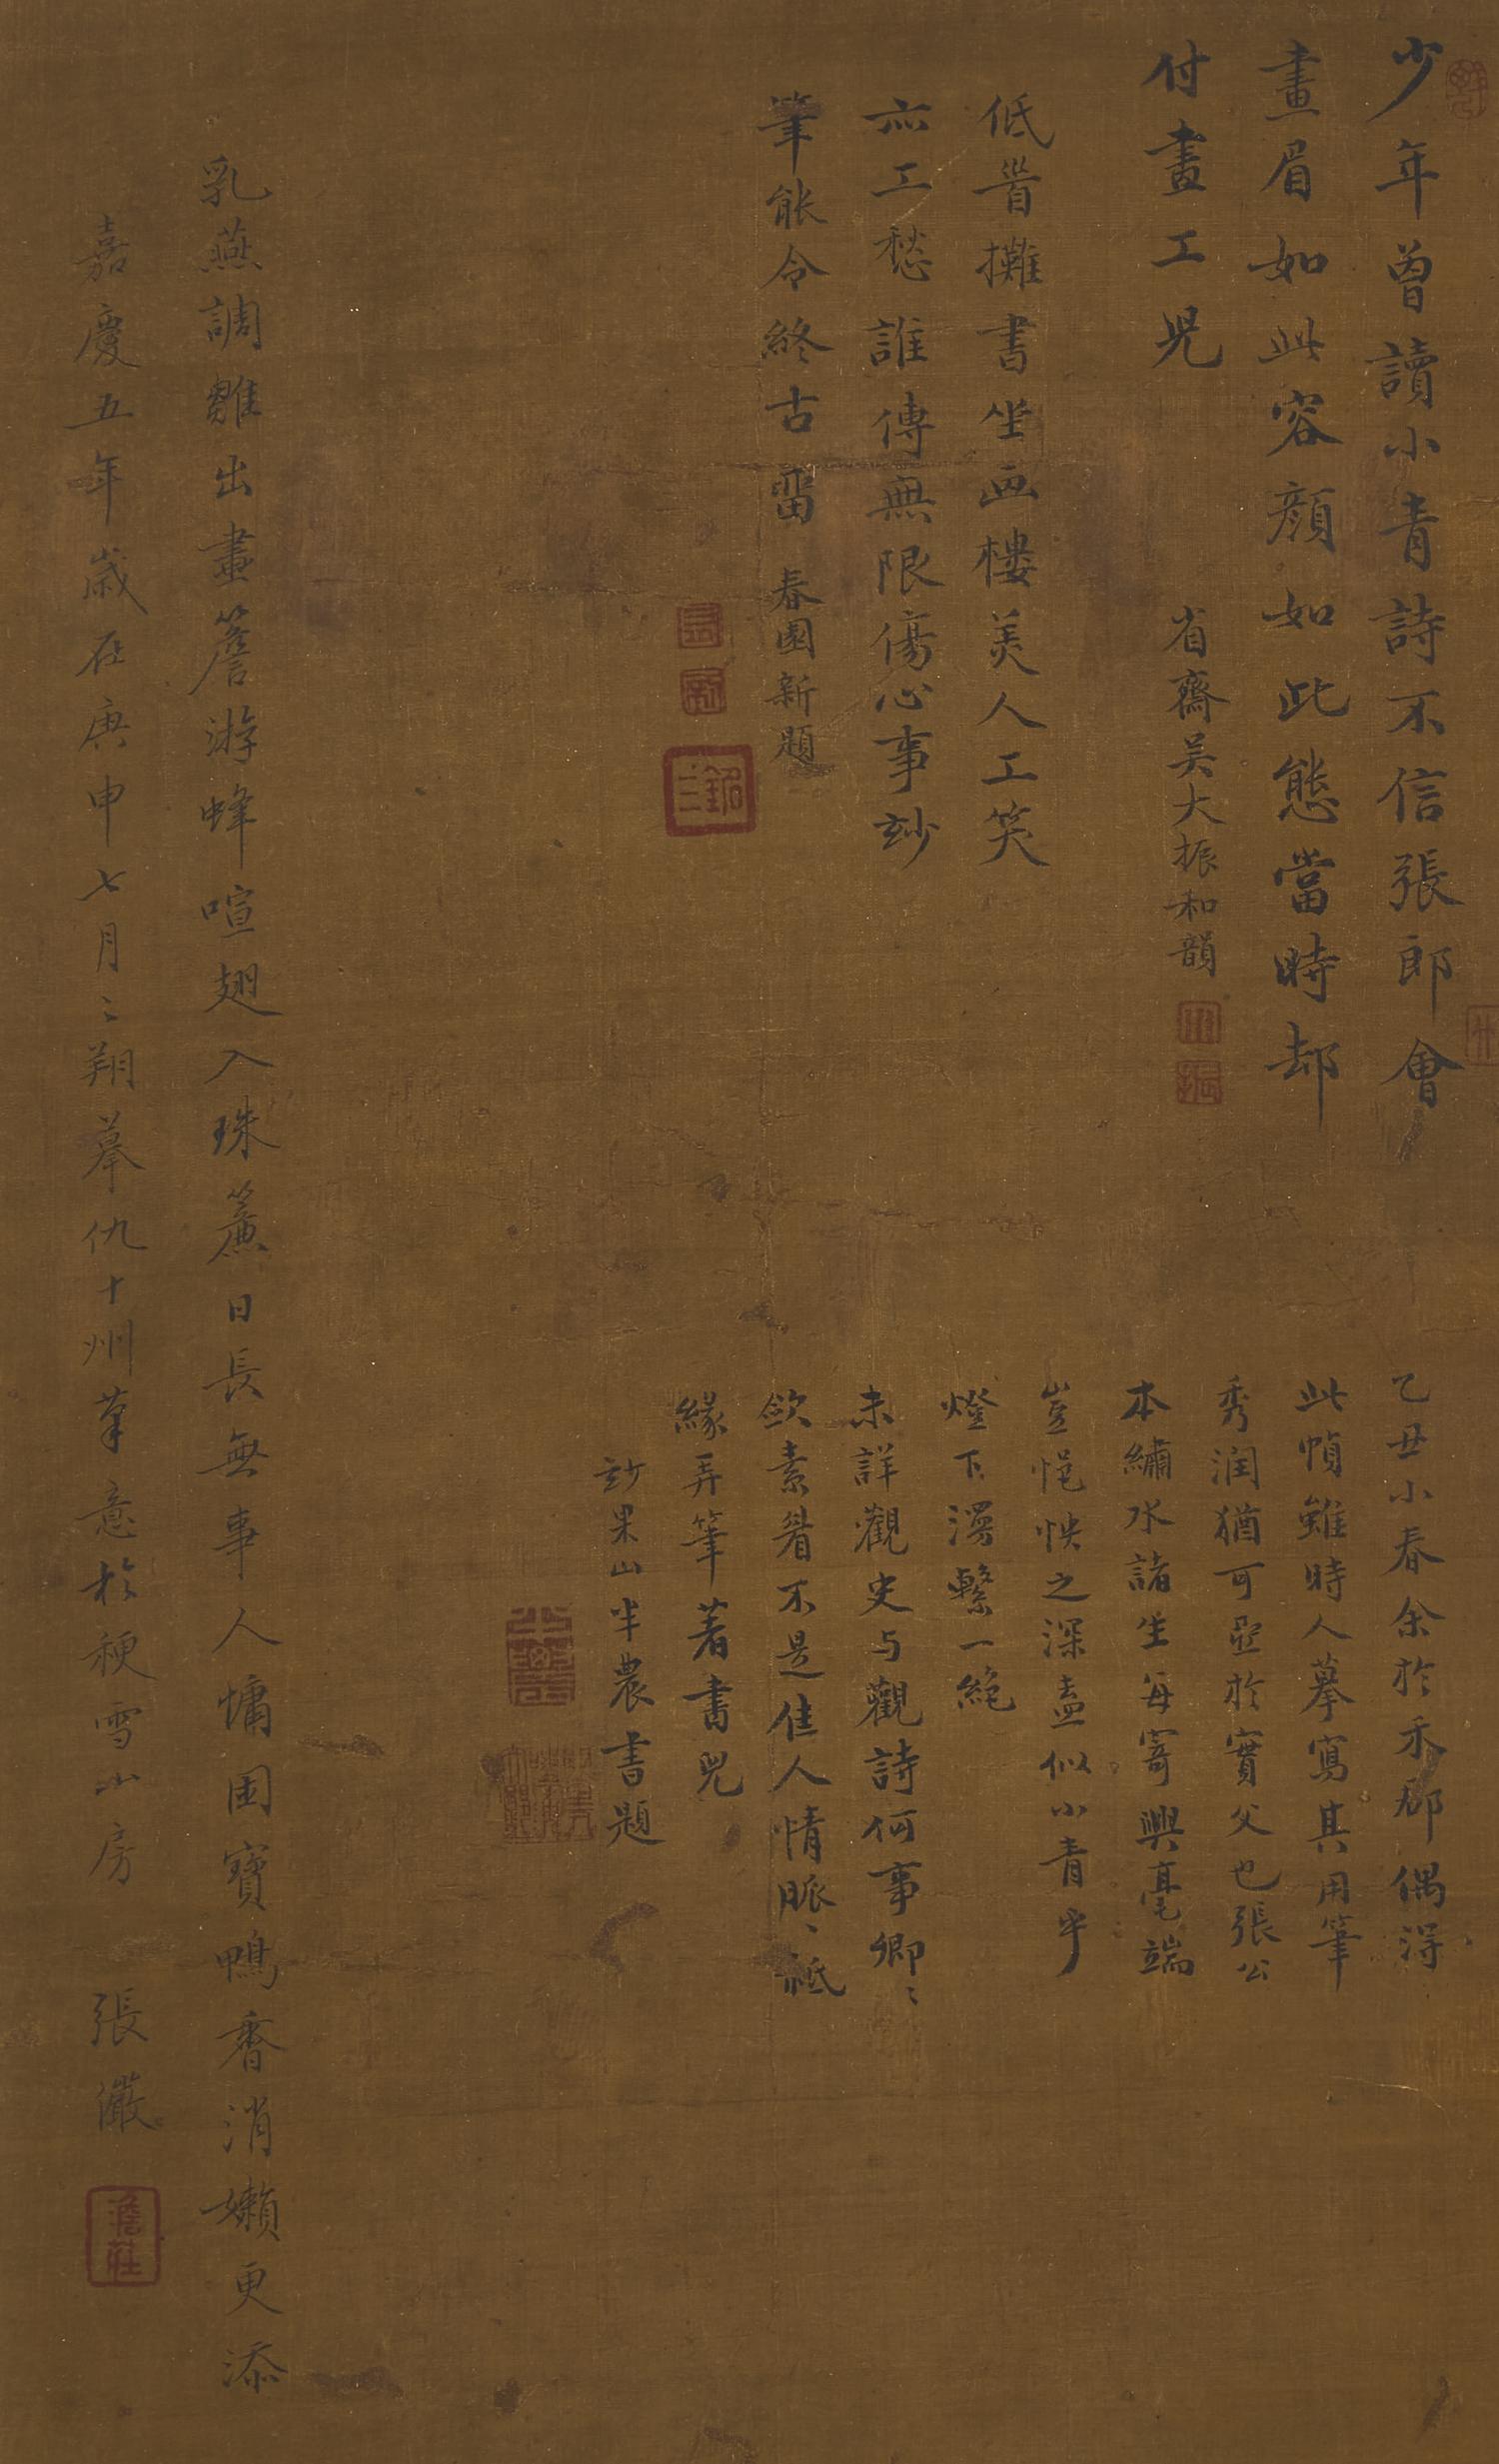 少年曾讀小青詩不信張郎會
畫眉如此容顏如此態當時却
付畫工兒
省齋吴大振和韻
低眉攤書坐画樓美人工笑
亦工愁誰傳無限傷心事玅
筆能令終古畱
春園新題
乙丑小春余於禾郡偶得
此幀雖時人摹寫其用筆
秀润猶可亞於實父也張公
本繡水諸生每寄興毫端
豈悒怏之深盍似小青乎
燈下漫繫一絶
未詳觀史与觀詩何事卿〻
斂素眉不是佳人情脈〻祗
緣弄筆著書兒
玅果山半農書題
乳燕調雛出畫簷游蜂喧翅入珠簾日長無事人慵困寶鴨香消嬾更添
嘉慶五年歲在庚申七月〻翔摹仇十州筆意於稉雪山房
張儼